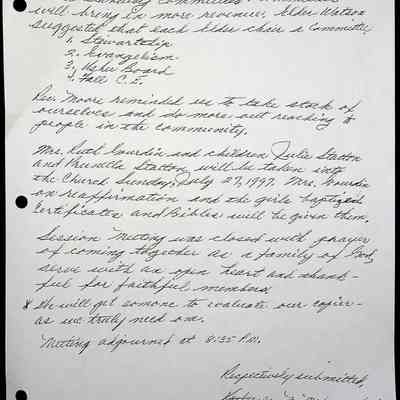 will bring in more revenue. Elder Watson
suggested that each Elder chair a Committee
1. Stewartship
2. Evangelism
3. Usher Board
4. Fall C.E.
Rev. Moore reminded us to take stock of
ourselves and do more out reaching to
people in the community.
Mrs. Ruth Gourdin and children Julie Statton
and Prunella Statton will be taken into
the Church Sunday, July 27, 1997. Mrs. Gourdin
on reaffirmation and the girls baptized
Certificates and Bibles will be given them.
Session Meeting was closed with prayer
of coming together as a family of God,
serve with an open heart and thank-
ful for faithful members.
* We will get someone to evaluate our copier-
as we truly need one.
Meeting adjourned at 8:35 P.M.
Respectively submitted,